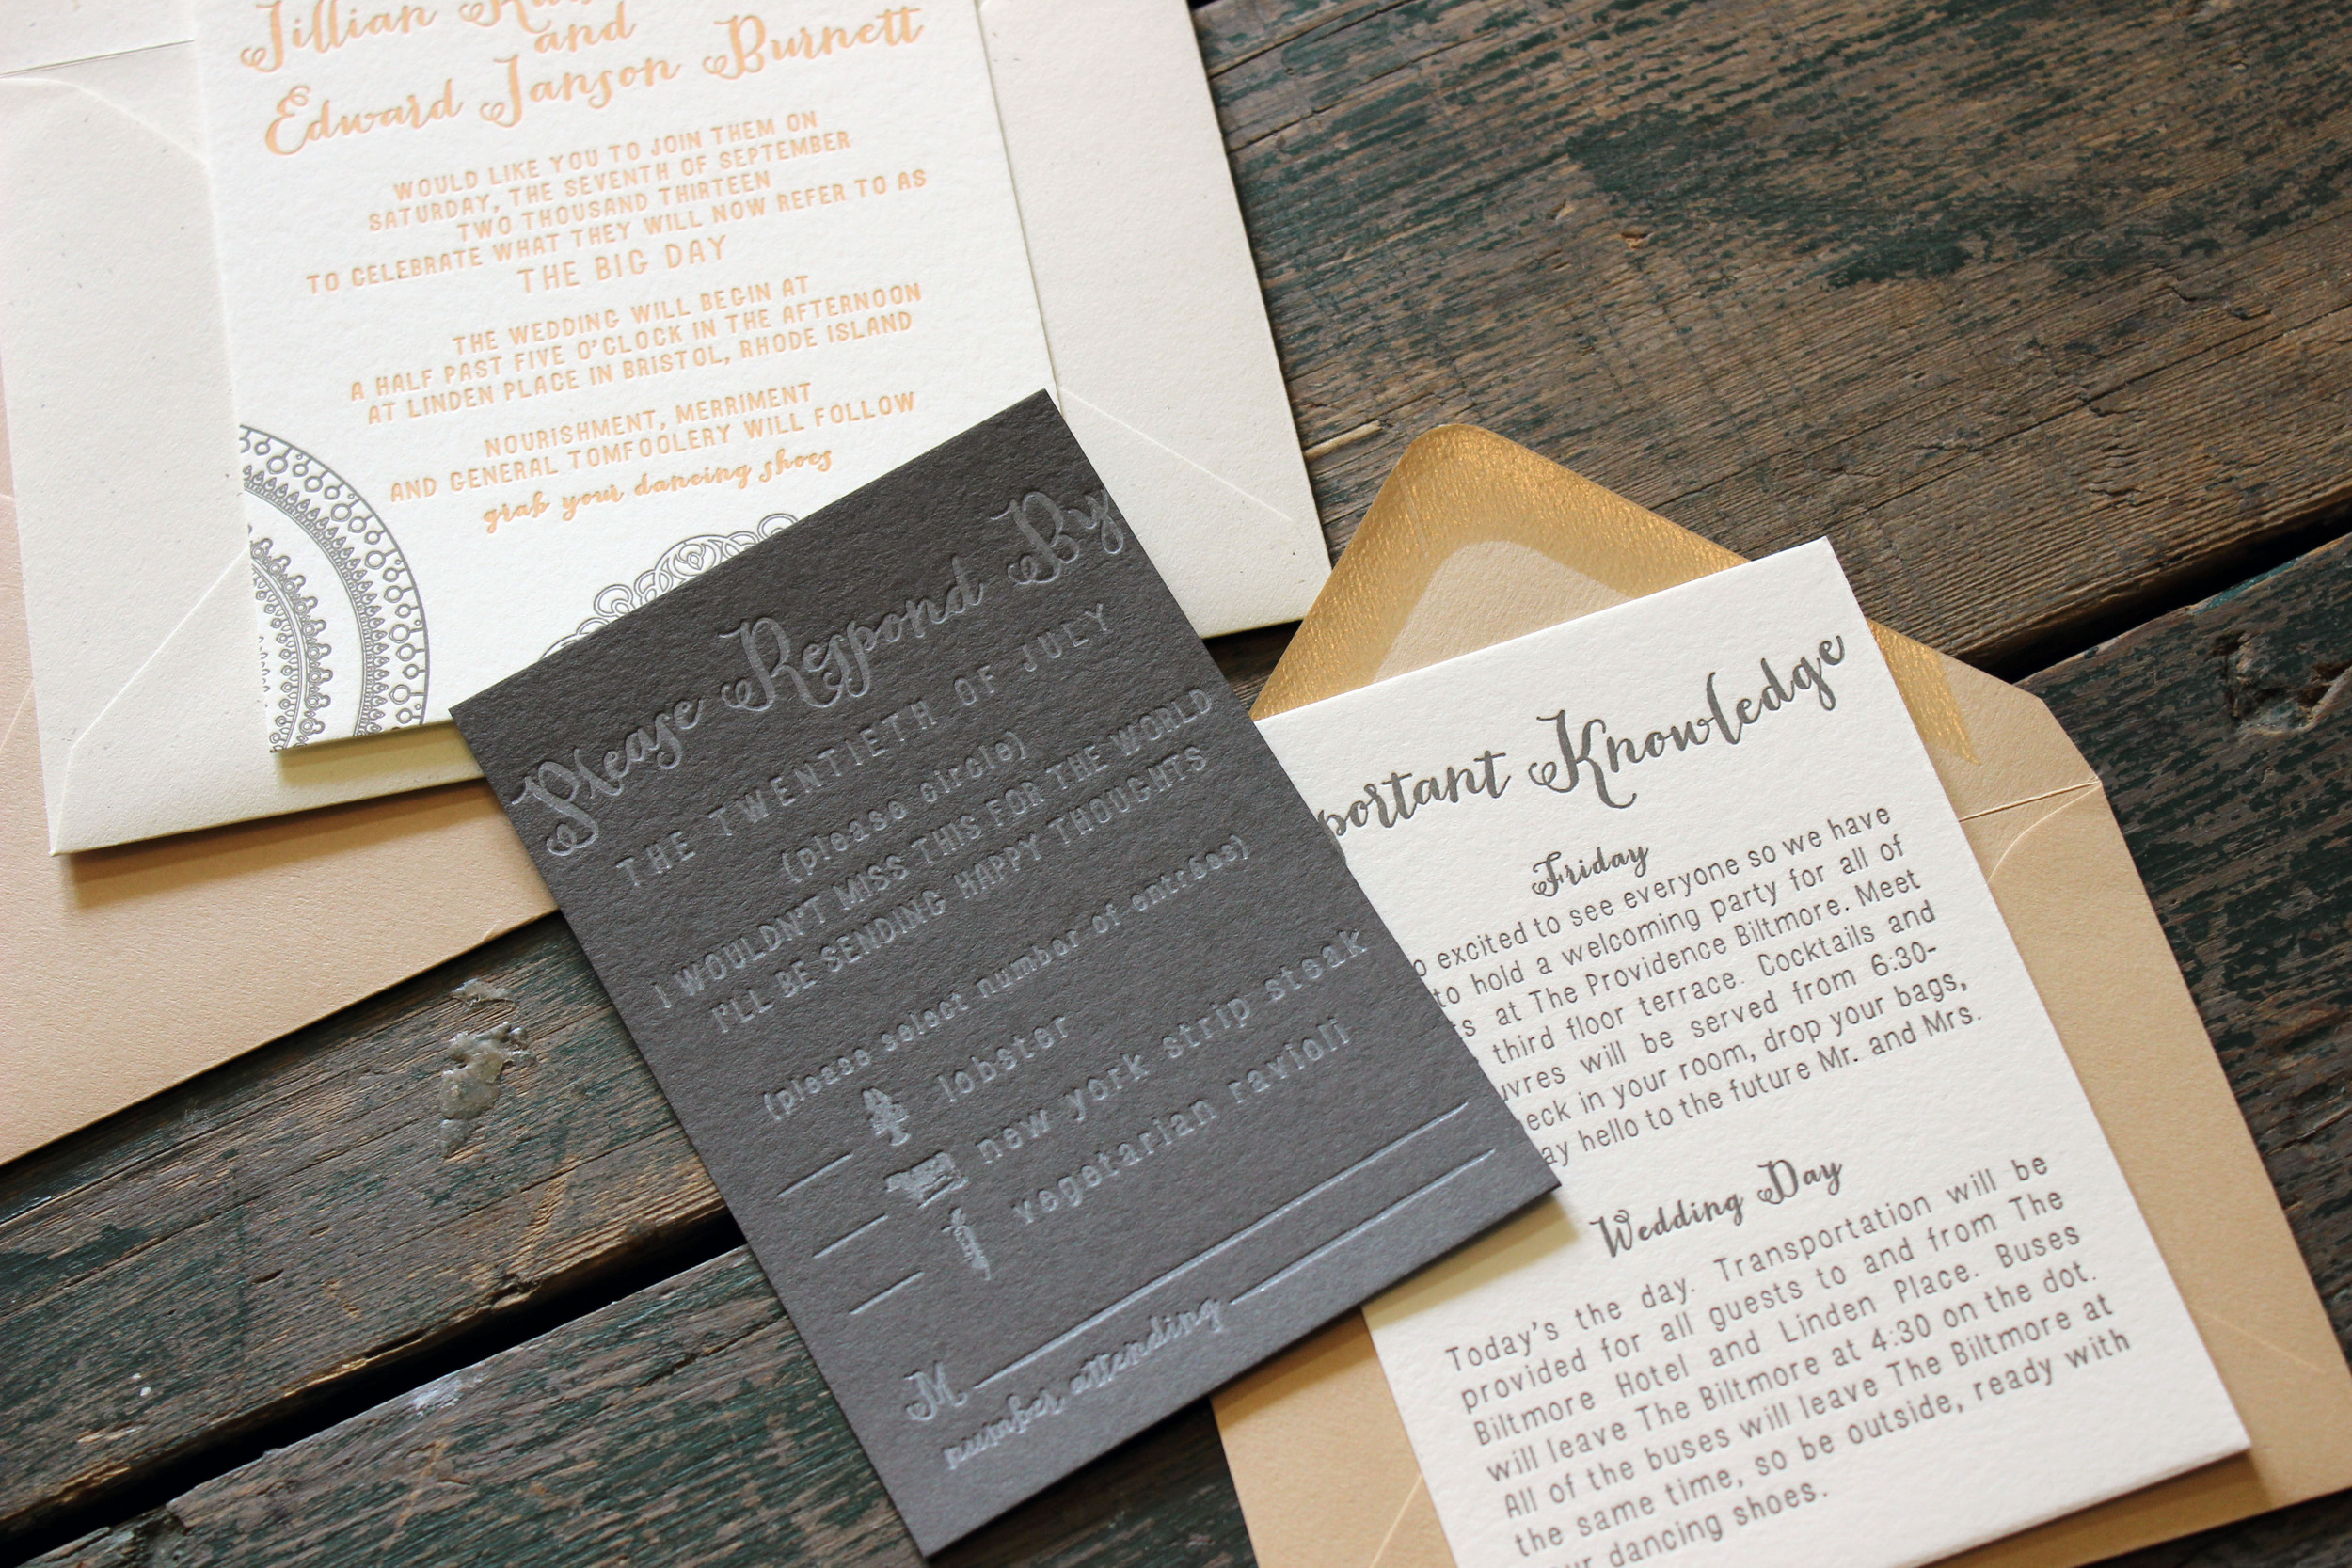 Jillian
and
Edward Janson Burnett
WOULD LIKE YOU TO JOIN THEM ON
SATURDAY, THE SEVENTH OF SEPTEMBER
TWO THOUSAND THIRTEEN
TO CELEBRATE WHAT THEY WILL NOW REFER TO AS
THE BIG DAY
THE WEDDING WILL BEGIN AT
A HALF PAST FIVE O'CLOCK IN THE AFTERNOON
AT LINDEN PLACE IN BRISTOL, RHODE ISLAND
NOURISHMENT, MERRIMENT
AND GENERAL TOMFOOLERY WILL FOLLOW
grab your dancing shoes
Please Respond By
THE TWENTIETH OF JULY
(please circle)
I WOULDN'T MISS THIS FOR THE WORLD
I'LL BE SENDING HAPPY THOUGHTS
(please select number of entrées)
lobster
new york strip steak
vegetarian ravioli
M
number attending
portant Knowledge
Friday
o excited to see everyone so we have
to hold a welcoming party for all of
s at The Providence Biltmore. Meet
third floor terrace. Cocktails and
uvres will be served from 6:30-
eck in your room, drop your bags,
ay hello to the future Mr. and Mrs.
Wedding Day
Today's the day. Transportation will be
provided for all guests to and from The
Biltmore Hotel and Linden Place. Buses
will leave The Biltmore at 4:30 on the dot.
All of the buses will leave The Biltmore at
the same time, so be outside, ready with
ur dancing shoes.